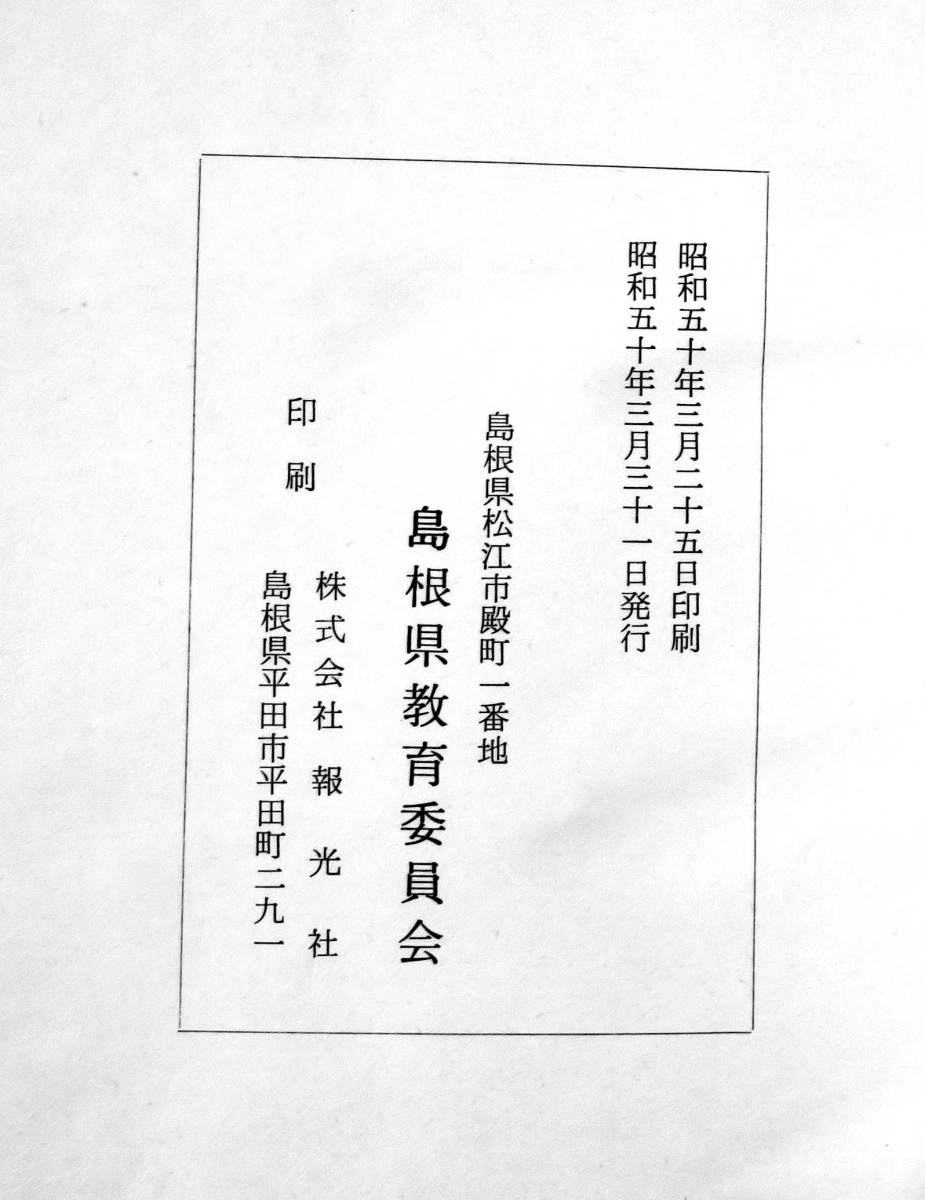 昭和五十年三月二十五日印刷
昭和五十年三月三十一日発行
島根県松江市殿町一番地
島根県教育委員会
印刷
株式会社報光社
島根県平田市平田町二九一